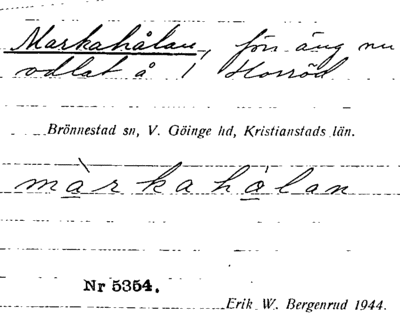 Markahålan, förr äng nu
odlat å 1 Horröd
Brönnestad sn, V. Göinge hd, Kristianstads län.
màrkahọlan
Nr 5354.
Erik W. Bergenrud 1944.